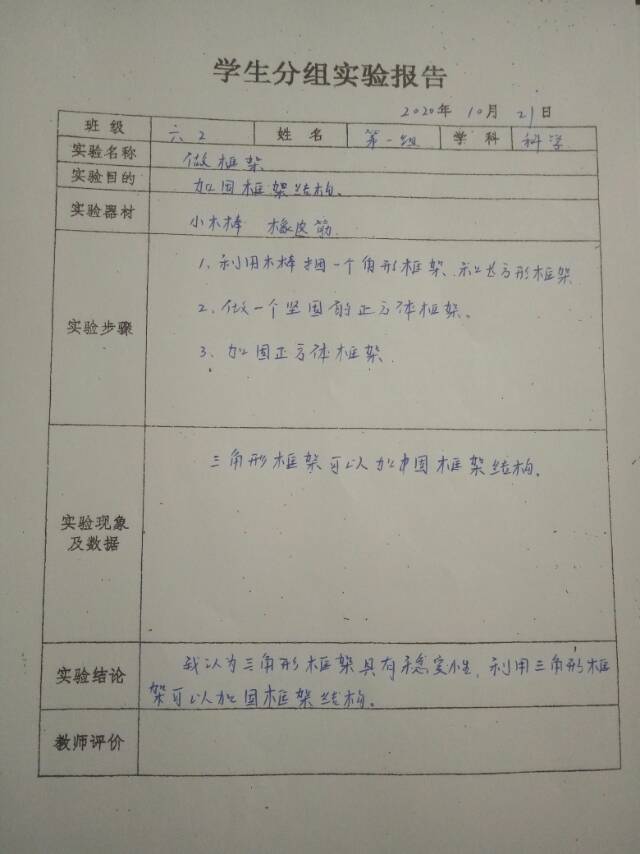 学生分组实验报告
2020年 10月 21日
班级 六 2 姓名 第一组 学科 科学
实验名称 做框架
实验目的 加固框架结构。
实验器材 小木棒 橡皮筋
1、利用木棒捆一个角形框架、和长方形框架
2、做一个坚固的正方体框架。
实验步骤
3、加固正方体框架
三角形框架可以加固框架结构。
实验现象
及数据
实验结论 我认为三角形框架具有稳定性,利用三角形框
架可以加固框架结构。
教师评价